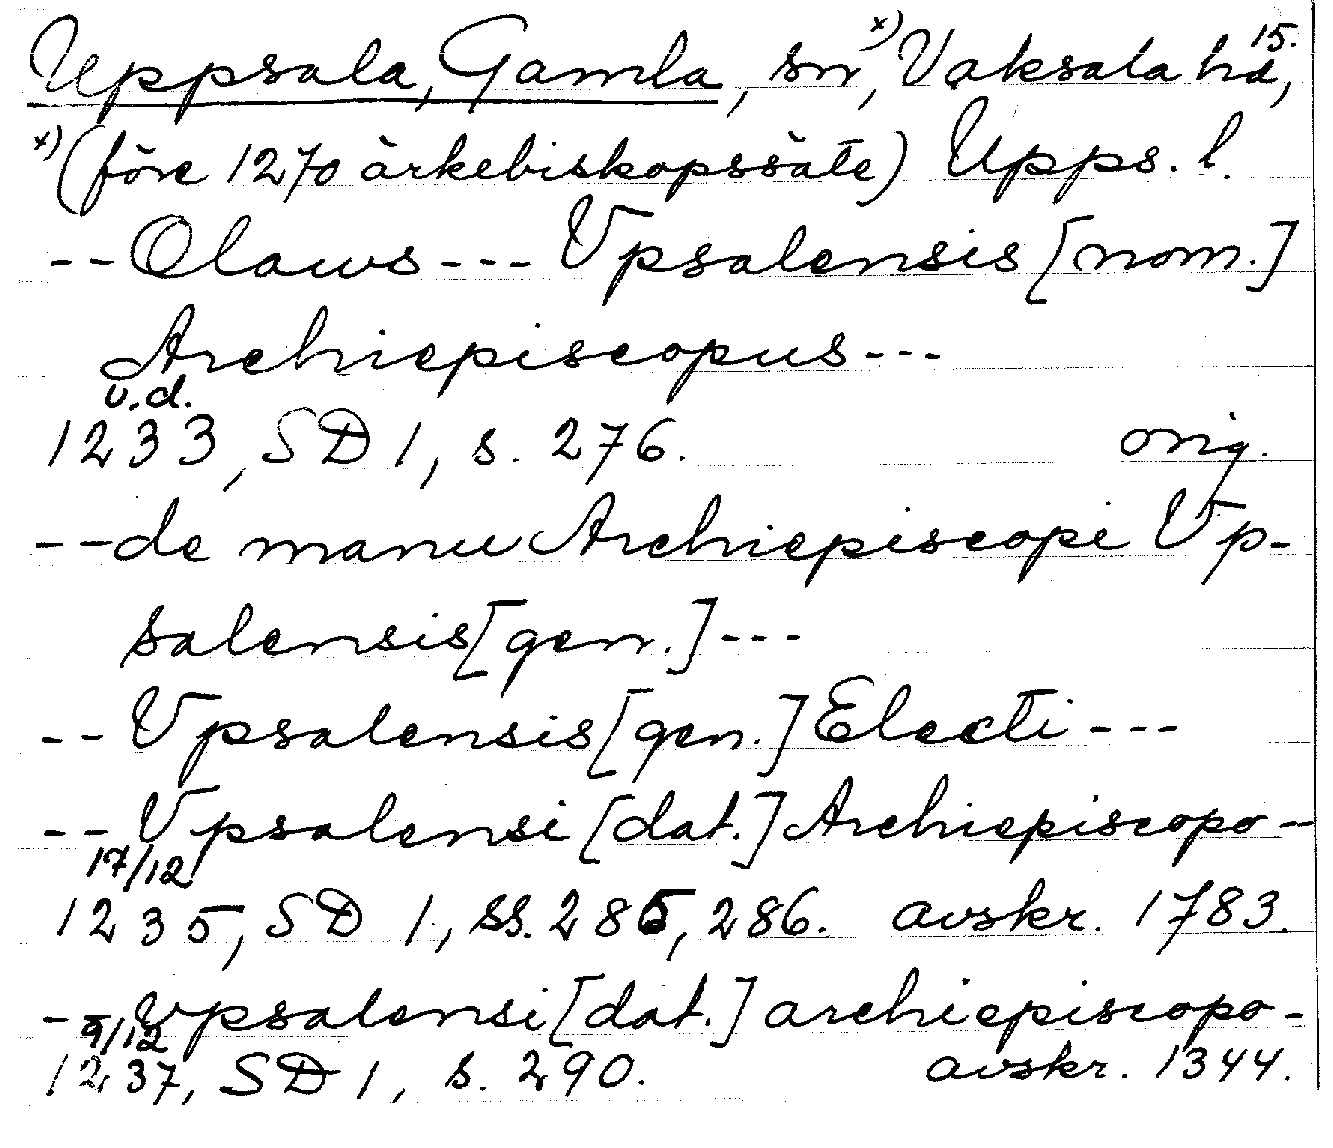 15.
Uppsala, Gamla, sn, x) Vaksala hd,
x) (före 1270 ärkebiskopssäte) Upps. l.
-- Olaws --- Vpsalensis [nom.]
Archiepiscopus ---
u.d.
1233, SD 1, s. 276. orig.
-- de manu Archiepiscopi Vp-
salensis [gen.] ---
-- Vpsalensis [gen.] Electi ---
-- Vpsalensi [dat.] Archiepiscopo -
17/12
1235, SD 1, ss. 285, 286. avskr. 1783.
-- vpsalensi [dat.] archiepiscopo -
9/12
1237, SD 1, s. 290. avskr. 1344.